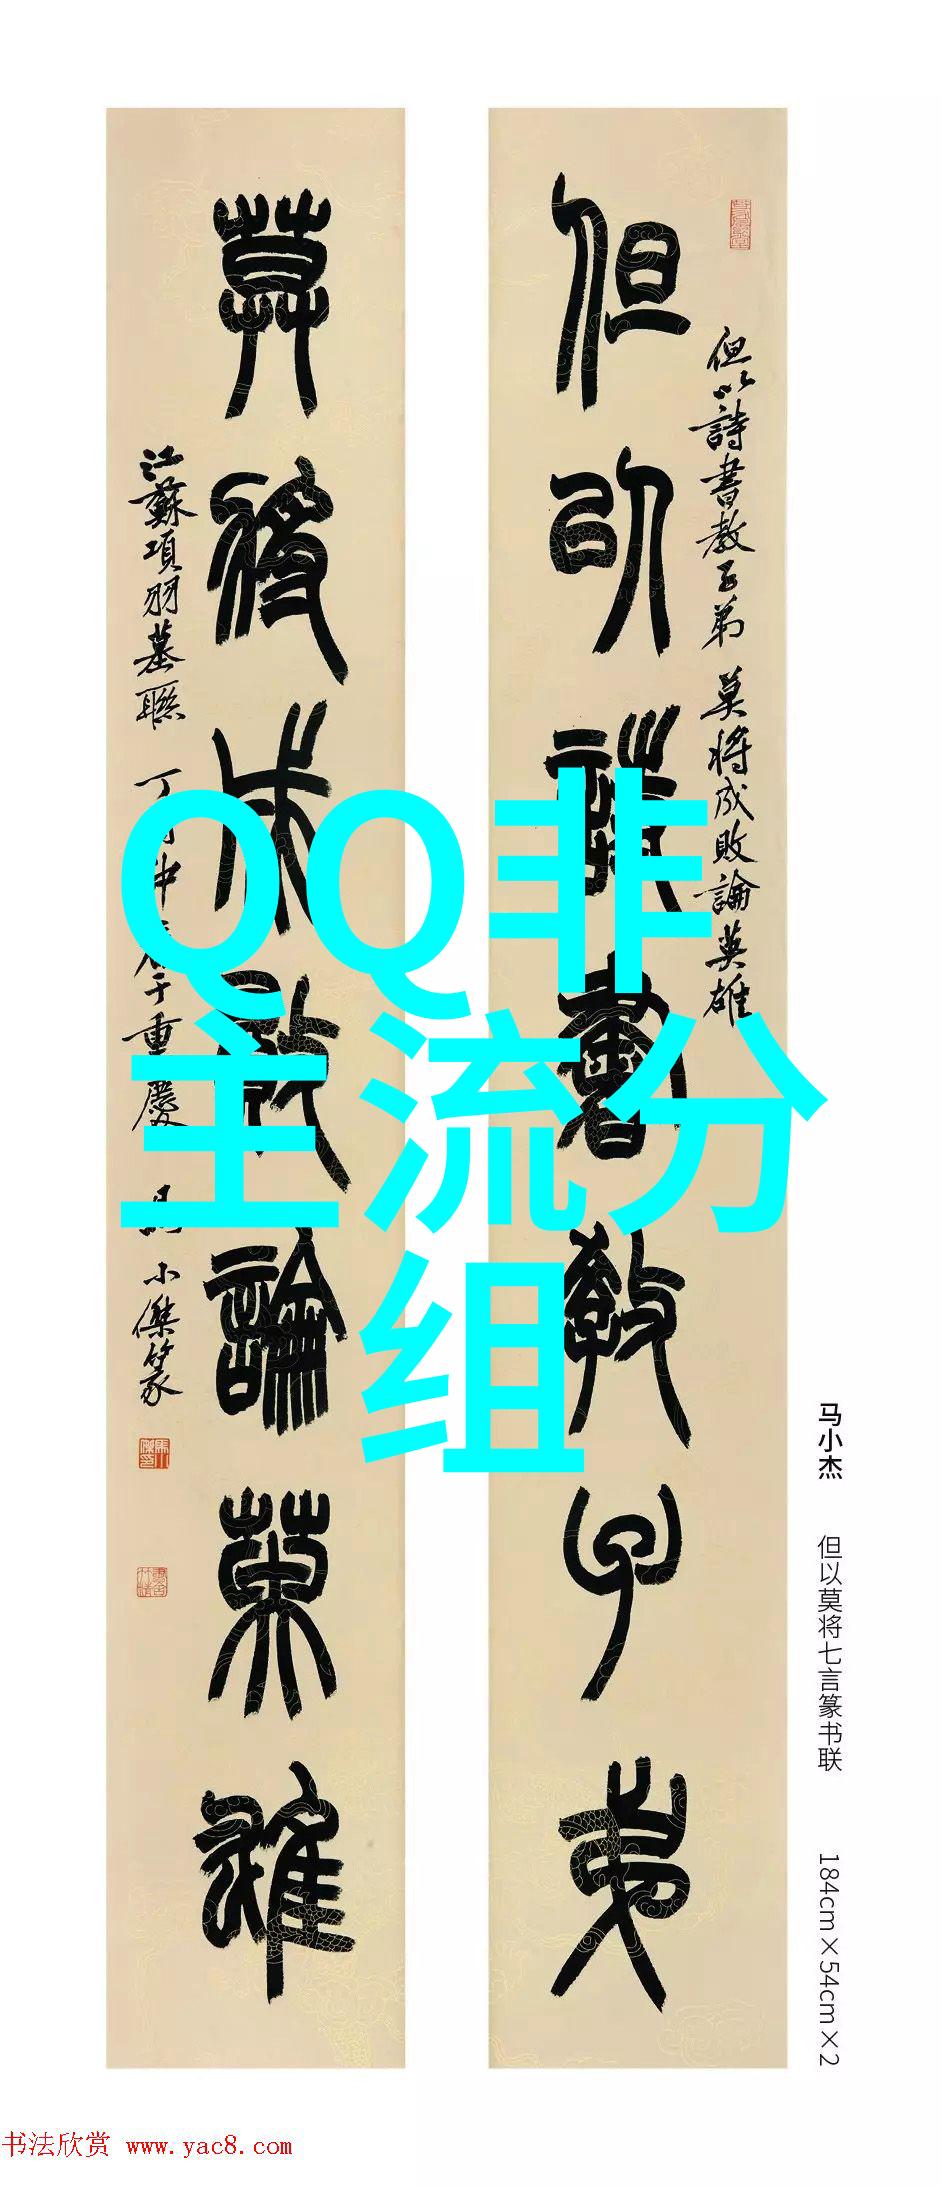 但以詩書教子弟
但以詩書教子弟 莫將成敗論英雄
莫將成敗論英雄
江蘇項羽墓聯 丁酉仲春于重慶 馬小傑篆
QQ非
主流分
组
马小杰 但以莫将七言篆书联 184cm×54cm×2
书法欣赏 www.yac8.com